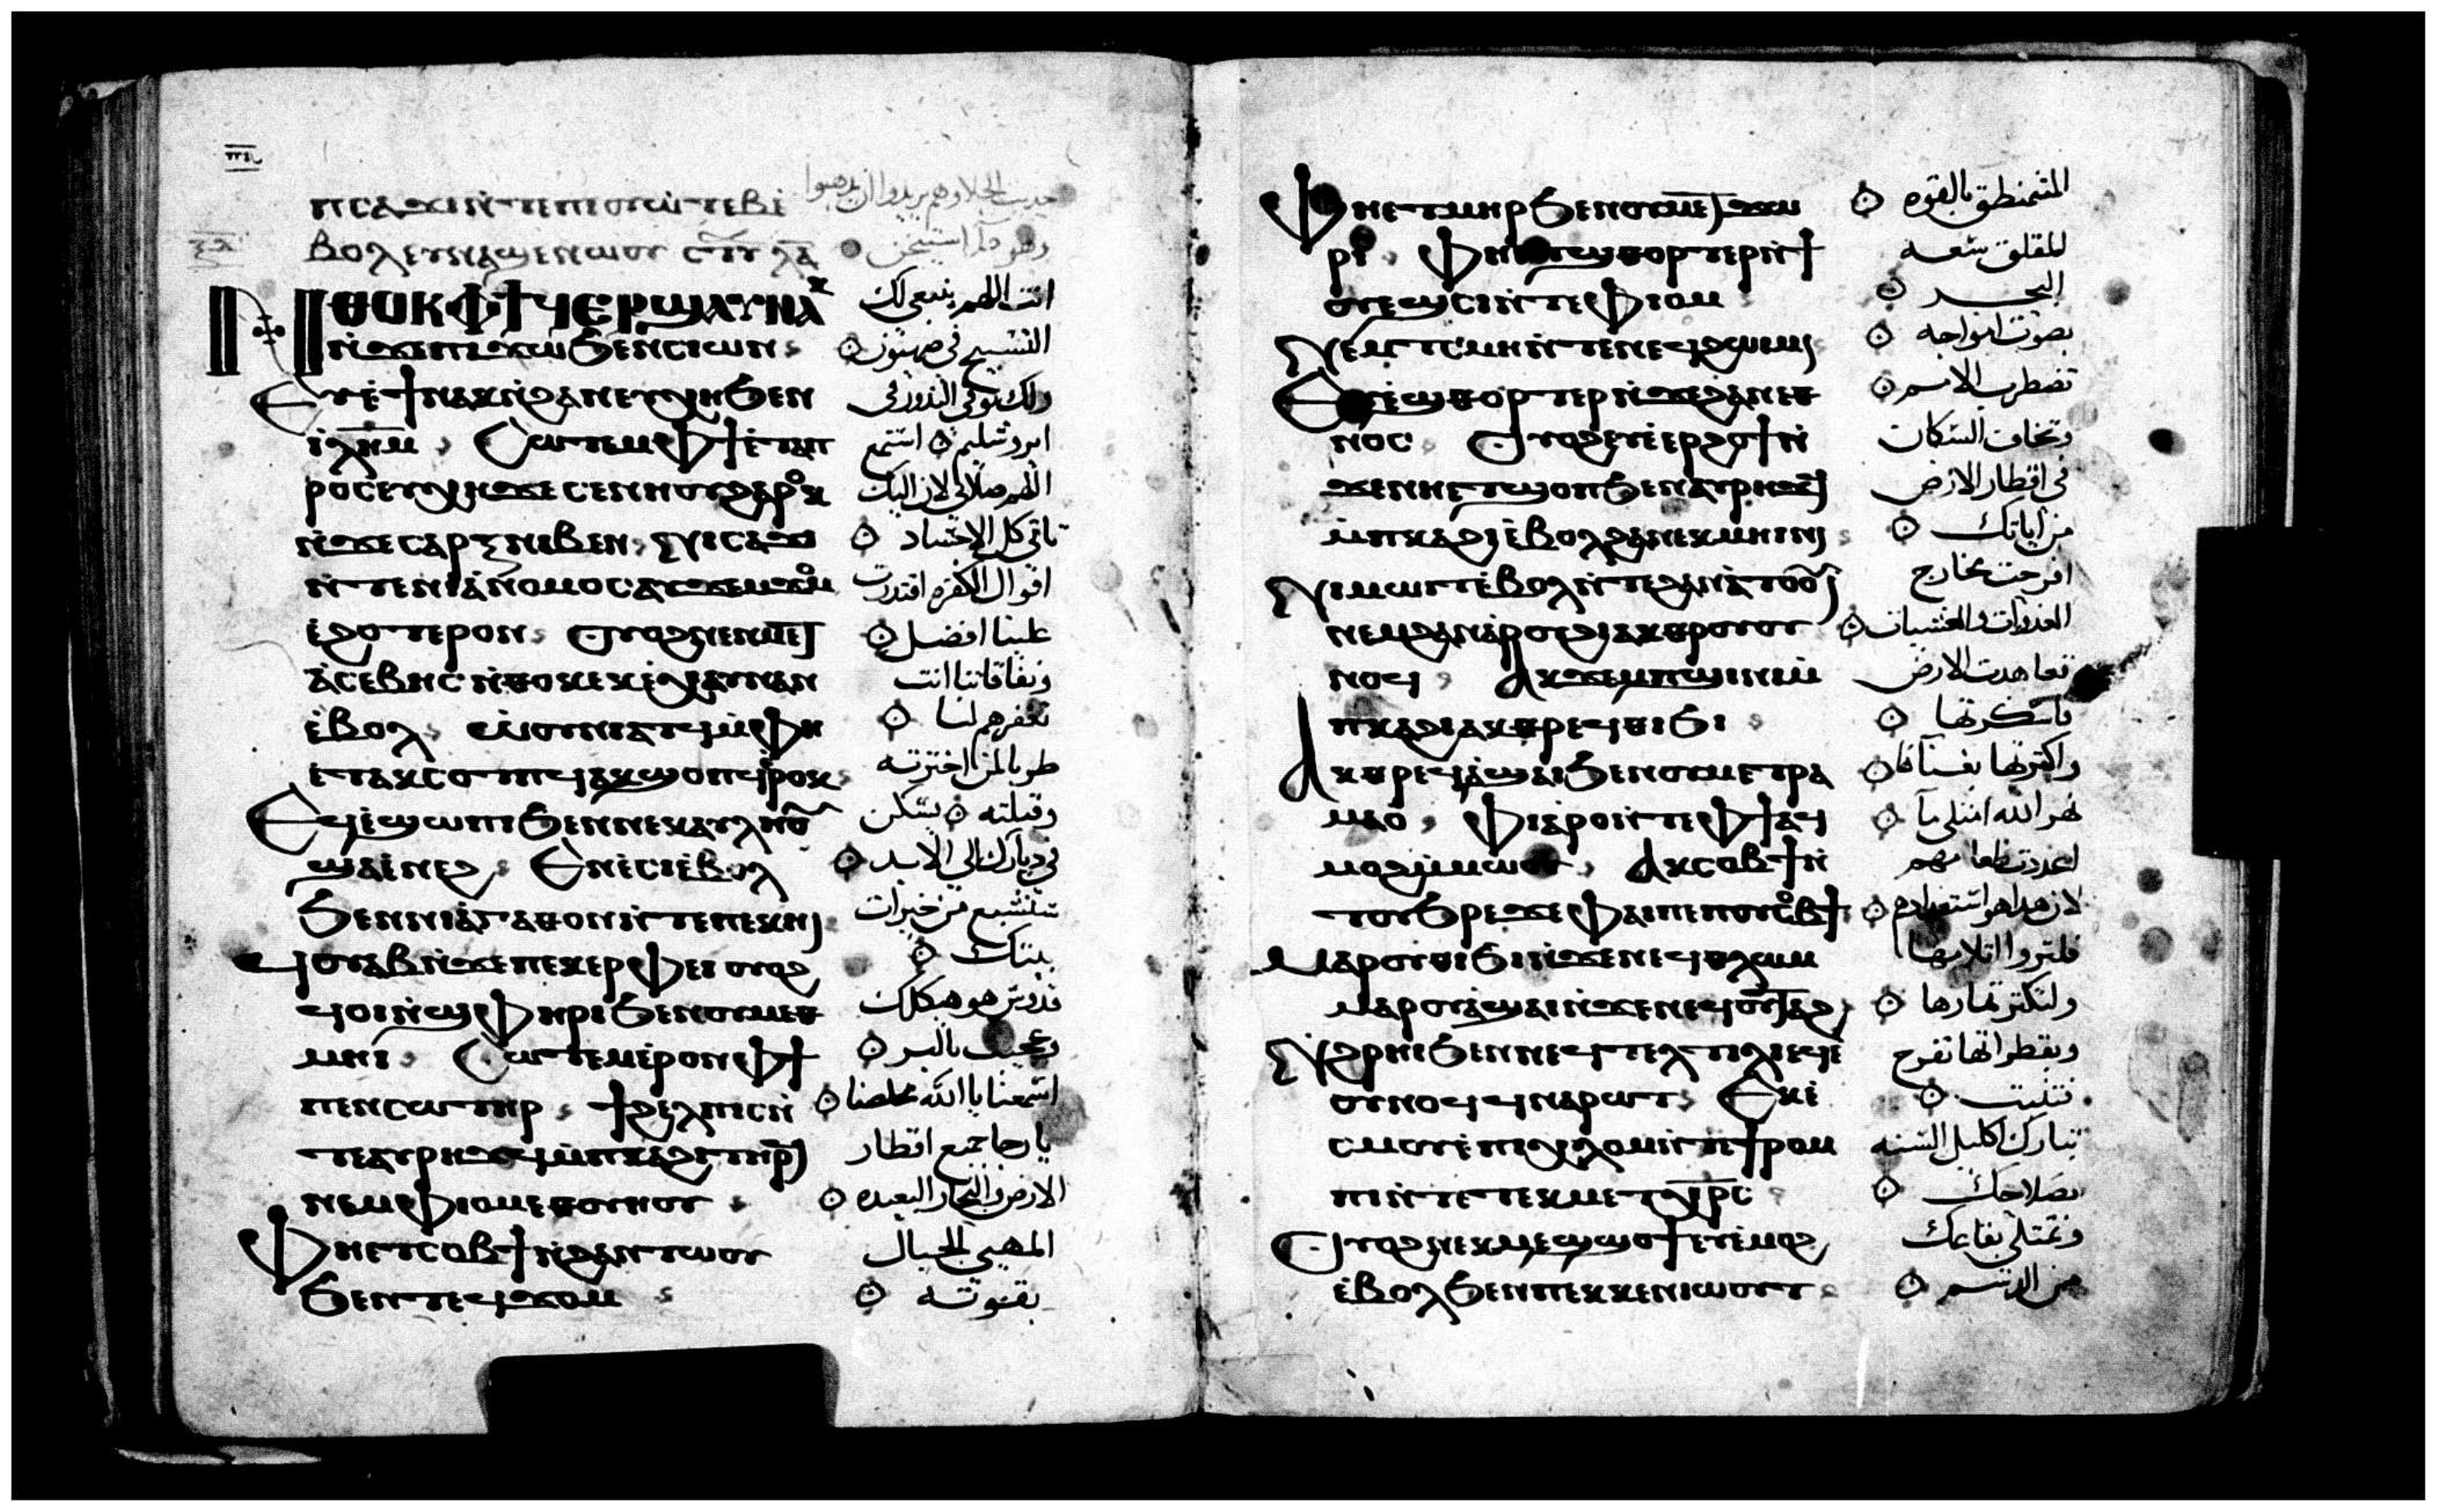 ⲡⲥⲁϫⲓⲛ̀ⲧⲉⲡⲓⲟⲩⲱ̀ⲧⲉⲃⲓ̀
ⲃⲟⲗⲉⲩⲛⲁϣⲉⲛⲱⲟⲩ
ⲛ̀ⲑⲟⲕⲫϯϥⲉⲣϣⲁⲩⲛⲁⲕ
ⲛ̀ϫⲉⲡⲓϫⲱϧⲉⲛⲥⲓⲱⲛ
ⲉⲩⲉ̀ϯⲛⲁⲕⲛ̀ϩⲁⲛⲉⲩⲭⲏϧⲉⲛ
ⲓ̅ⲗ̅ⲏ̅ⲙ̅ ⲥⲱⲧⲉⲙⲫϯⲉ̀ⲧⲁⲡ
ⲣⲟⲥⲉⲩⲭⲏϫⲉⲥⲉⲛⲏⲟⲩϩⲁⲣⲟⲕ
ⲛ̀ϫⲉⲥⲁⲣⲝⲛⲓⲃⲉⲛ ⲛⲓⲥⲁϫⲓ
ⲛ̀ⲧⲉⲛⲓⲁ̀ⲛⲟⲙⲟⲥⲁⲩϫⲉⲙϫⲟⲙ
ⲉ̀ϩⲟⲧⲉⲣⲟⲛ ⲟⲩⲟϩⲛⲉⲛⲙⲉⲧ
ⲁ̀ⲥⲉⲃⲏⲥⲛ̀ⲑⲟⲕⲉⲕⲉ̀ⲭⲁⲩⲛⲁⲛ
ⲉ̀ⲃⲟⲗ ⲱ̀ⲟⲩⲛⲓⲁⲧϥⲙ̀ⲫⲏ
ⲉ̀ⲧⲁⲕⲥⲟⲧⲡϥⲁⲕϣⲟⲡϥⲉ̀ⲣⲟⲕ
ⲉϥⲉ̀ϣⲱⲡⲓϧⲉⲛⲛⲉⲕⲁⲩⲗⲏⲟⲩ
ϣⲁⲉ̀ⲛⲉϩ ⲉⲛⲉ̀ⲥⲓⲉ̀ⲃⲟⲗ
ϧⲉⲛⲛⲓⲁ̀ⲅⲁⲑⲟⲛⲛ̀ⲧⲉⲡⲉⲕⲏⲓ
ϥⲟⲩⲁⲃⲛ̀ϫⲉⲡⲉⲕⲉⲣⲫⲉⲓ ⲟⲩⲟϩ
ϥⲟⲓⲛ̀ϣⲫⲏⲣⲓϧⲉⲛⲟⲩⲙⲉⲑ
ⲙⲏⲓ ⲥⲱⲧⲉⲙⲉ̀ⲣⲟⲛⲫϯ
ⲡⲉⲛⲥⲱⲧⲏⲣ ϯϩⲉⲗⲡⲓⲥⲛ̀
ⲧⲉⲁⲩⲣⲏϫϥⲙ̀ⲡⲕⲁϩⲓⲧⲏⲣϥ
ⲛⲉⲙⲫⲓⲟⲙⲉⲑⲟⲩⲏⲟⲩ
ⲫⲏⲉⲧⲥⲟⲃϯⲛ̀ϩⲁⲛⲧⲱⲟⲩ
ϧⲉⲛⲧⲉϥϫⲟⲙ
انت اللهم ينبغي لك
التسبيح في صهيون
ولك توفي النذور في
ايروشليم استمع
اللهم صلاتي لان اليك
تاتي كل الاجساد
اقوال الكفره اقتدرت
علينا افضل
ونفاقاتنا انت
تغفرهم لنا
طوبا لمن اخترته
وقبلته يسكن
في ديارك الي الابد
سنشبع من خيرات
بيتك
قدوس هو هيكلك
وعجيب بالبر
استمعنا يا الله مخلصنا
يا رجا جميع اقطار
الارض والبحار البعيده
المهيي الجبال
بقوته
ⲫⲏⲉⲧⲙⲏⲣϧⲉⲛⲟⲩⲙⲉⲧϫⲱ
ⲣⲓ ⲫⲏⲉⲧϣⲑⲟⲣⲧⲉⲣⲛ̀ϯ
ⲟⲩⲉϣⲥⲓⲛ̀ⲧⲉⲫⲓⲟⲙ
ⲛⲉⲙⲧⲥⲙⲏⲛ̀ⲧⲉⲛⲉϥϩⲱⲓⲙⲓ
ⲉⲩⲉ̀ϣⲑⲟⲣⲧⲉⲣⲛ̀ϫⲉϩⲁⲛⲉⲑ
ⲛⲟⲥ ⲟⲩⲟϩⲉⲩⲉ̀ⲉⲣϩⲟϯⲛ̀
ϫⲉⲛⲏⲉⲧϣⲟⲡϧⲉⲛⲁⲩⲣⲏϫϥ
ⲙ̀ⲡⲕⲁϩⲓⲉ̀ⲃⲟⲗϩⲁⲛⲉⲕⲙⲏⲓⲛⲓ
ⲛⲓⲙⲱⲓⲧⲉ̀ⲃⲟⲗⲛ̀ⲧⲉϩⲁⲛⲁ̀ⲧⲟⲟⲩⲓ
ⲛⲉⲙϩⲁⲛⲁ̀ⲣⲟⲩϩⲓⲁⲕⲑⲣⲟⲩⲟⲩ
ⲛⲟϥ ⲁⲕϫⲉⲙⲡϣⲓⲛⲓⲙ̀
ⲡⲕⲁϩⲓⲁⲕⲑⲣⲉϥⲑⲓϧⲓ
ⲁⲕⲑⲣⲉϥⲁ̀ϣⲁⲓϧⲉⲛⲟⲩⲙⲉⲧⲣⲁ
ⲙⲁⲟ̀ ⲫⲓⲁⲣⲟⲛ̀ⲧⲉⲫϯⲁϥ
ⲙⲟϩⲙ̀ⲙⲱⲟⲩ ⲁⲕⲥⲟⲃϯⲛ̀
ⲧⲟⲩϧⲣⲉϫⲉⲫⲁⲓⲡⲉⲡⲟⲩⲥⲟⲃϯ
ⲙⲁⲣⲟⲩⲑⲓϧⲓⲛ̀ϫⲉⲛⲉϥⲑⲗⲱⲙ
ⲙⲁⲣⲟⲩⲁ̀ϣⲁⲓⲛ̀ϫⲉⲛⲉϥⲟⲩⲧⲁϩ
ⲛ̀ϩⲣⲏⲓϧⲉⲛⲛⲉϥⲧⲉⲗⲧⲓⲗⲓⲉϥⲉ̀
ⲟⲩⲛⲟϥϥⲛⲁⲣⲱⲧ ⲉⲕⲉ̀
ⲥⲙⲟⲩⲉ̀ⲡⲓⲭⲗⲟⲙⲛ̀ⲧⲉϯⲣⲟⲙ
ⲡⲓⲛ̀ⲧⲉⲧⲉⲕⲙⲉⲧⲭ̅ⲣ̅ⲥ̅
ⲟⲩⲟϩⲛⲉⲕⲙⲉϣϣⲟϯⲉⲩⲉ̀ⲙⲟϩ
ⲉ̀ⲃⲟⲗϧⲉⲛⲡⲕⲉⲛⲓⲱⲟⲩⲧ
المتمنطق بالقوه
المقلق سعه
البحر
بصوت امواجه
تضطرب الامم
وتخاف السكان
في اقطار الارض
من اياتك
افرحت مخارج
الغدوات والعشيات
تعاهدت الارض
فاسكرتها
واكثرتها بغنافا
نهر الله امتلي مآ
اعددت طعامهم
لان هذا هو استعدادهم
فلترو اتلامها
ولتكثر ثمارها
وبقطراتها تفرح
فتنبت
تبارك اكليل السنه
بصلاحك
وتمتلي بقاعك
من الدسم